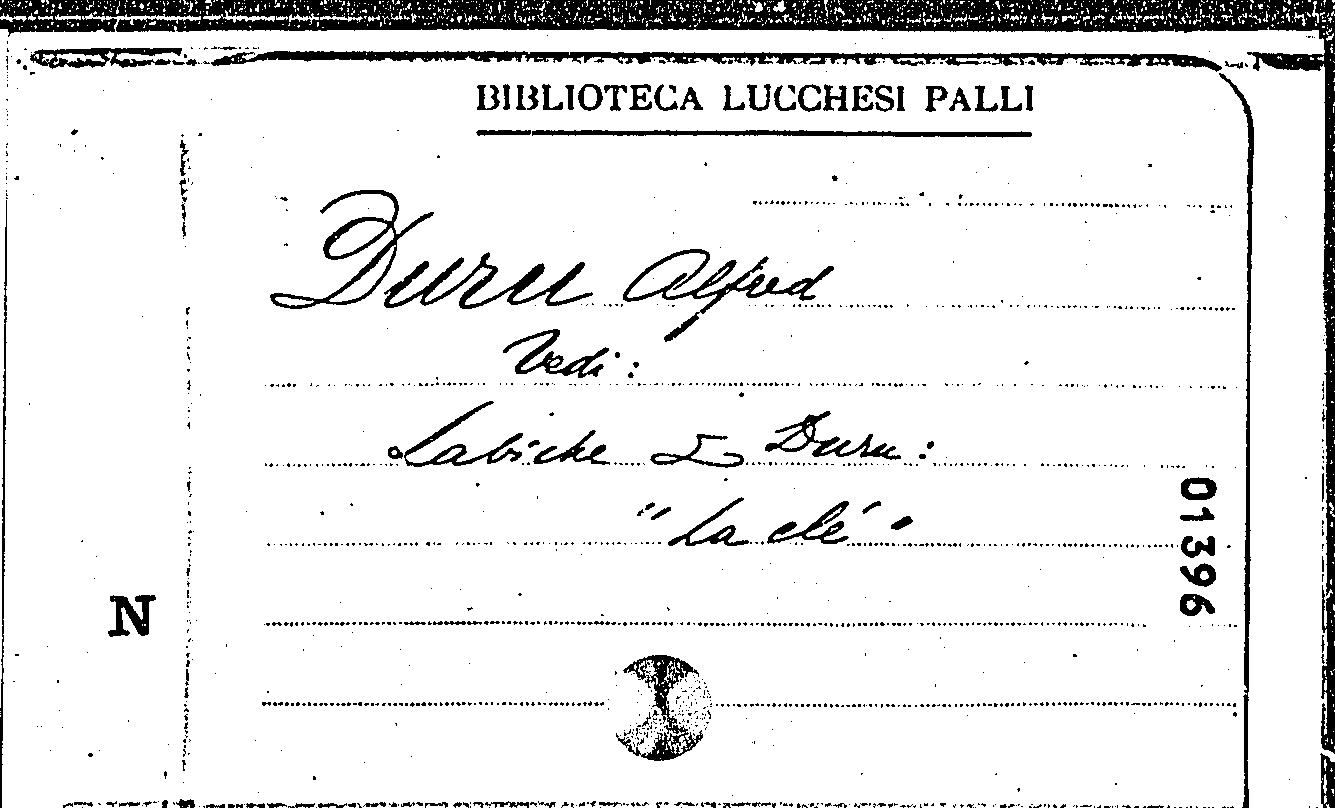 BIBLIOTECA LUCCHESI PALLI
Duru Alfred
Vedi:
Labiche & Duru:
"La clé"
01396
N